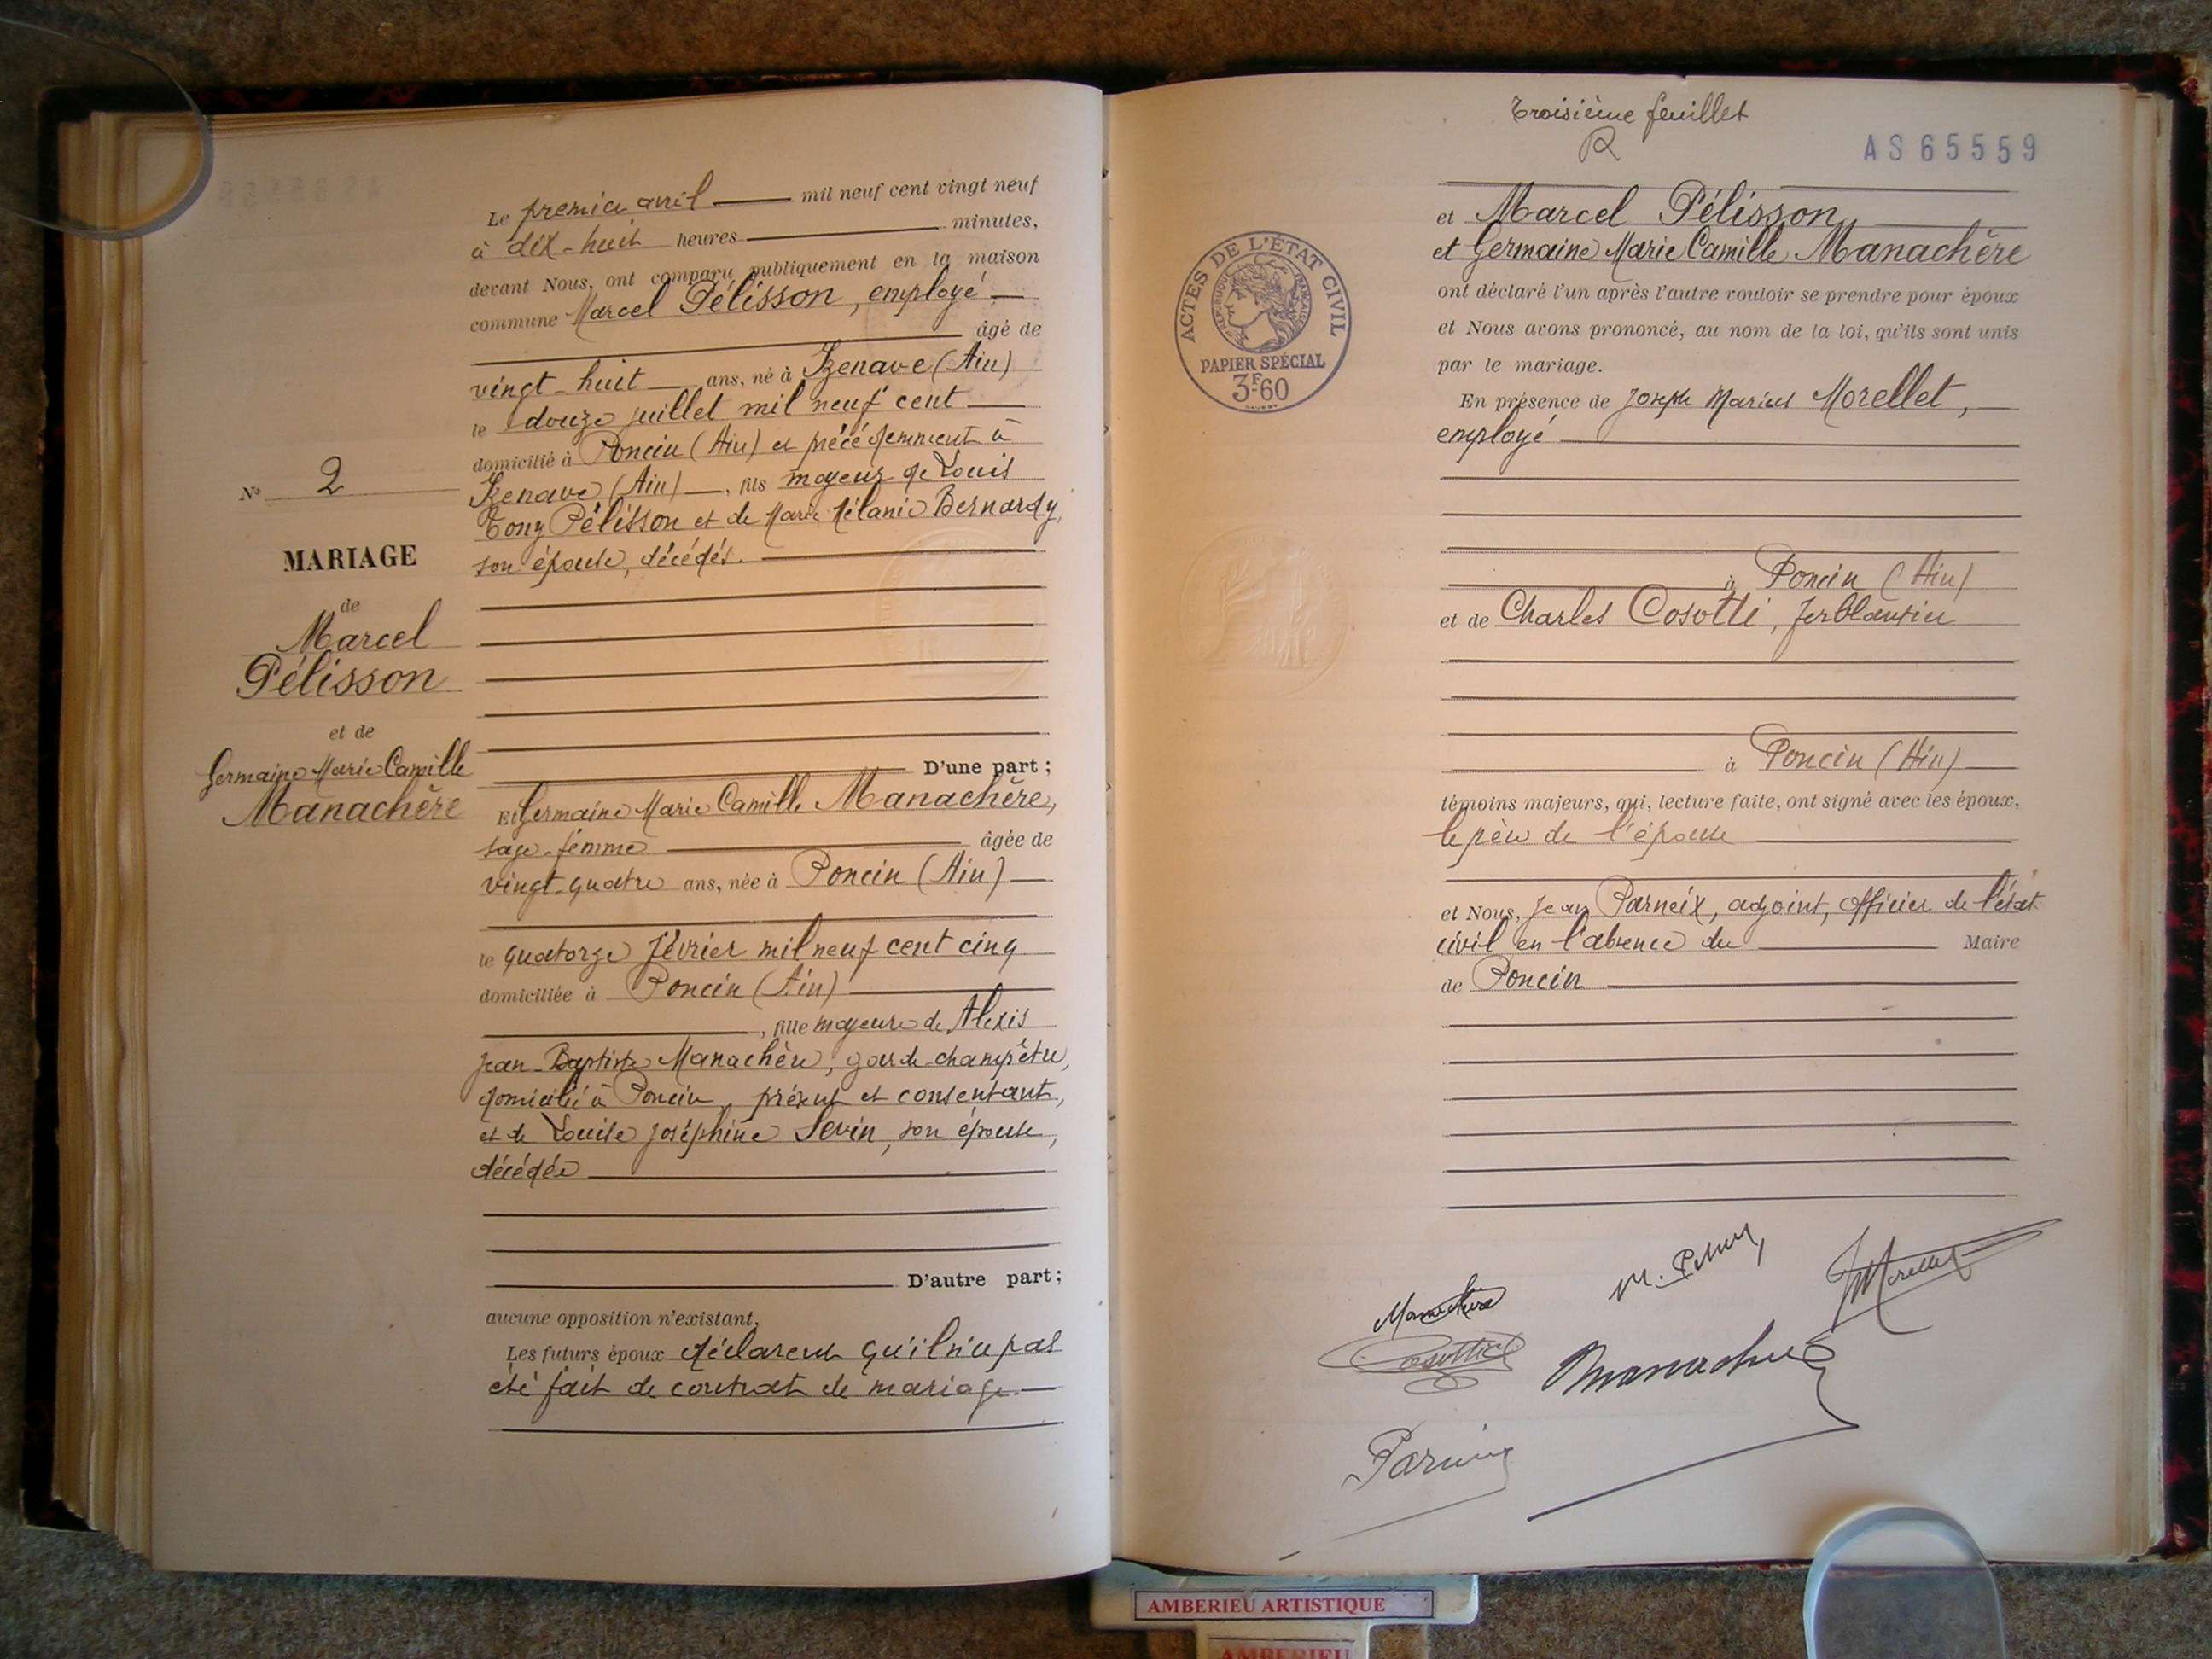 Le premier avril mil neuf cent vingt neuf
à dix-huit heures minutes,
devant Nous, ont comparu publiquement en la maison
commune Marcel Pélisson, employé
âgé de
vingt-huit ans, né à Izenave (Ain)
le douze juillet mil neuf cent
domicilié à Poncin (Ain) et précédemment à
Izenave (Ain), fils majeur de Louis
Tony Pélisson et de Marie Mélanie Bernardy,
son épouse, décédés.
N° 2
MARIAGE
de
Marcel
Pélisson
et de
Germaine Marie Camille
Manachère
D'une part;
Et Germaine Marie Camille Manachère,
sage-femme âgée de
vingt-quatre ans, née à Poncin (Ain)
le quatorze février mil neuf cent cinq
domiciliée à Poncin (Ain)
, fille majeure de Alexis
Jean-Baptiste Manachère, garde-champêtre,
domicilié à Poncin, présent et consentant,
et de Louise Joséphine Sevin, son épouse,
décédée
D'autre part;
aucune opposition n'existant,
Les futurs époux déclarent qu'il n'a pas
été fait de contrat de mariage.
Troisième feuillet
AS65559
et Marcel Pélisson
et Germaine Marie Camille Manachère
ont déclaré l'un après l'autre vouloir se prendre pour époux
et Nous avons prononcé, au nom de la loi, qu'ils sont unis
par le mariage.
ACTES DE L'ÉTAT CIVIL
RÉPUBLIQUE FRANÇAISE
PAPIER SPÉCIAL
3F60
En présence de Joseph Marius Morellet,
employé
à Poncin (Ain)
et de Charles Cosotti, ferblantier
à Poncin (Ain)
témoins majeurs, qui, lecture faite, ont signé avec les époux,
le père de l'épouse
et Nous, Jean Parneix, adjoint, officier de l'état
civil en l'absence du Maire
de Poncin
Manachère
JMorellet
Cosotti
Manachère
AMBERIEU ARTISTIQUE
AMBERIEU